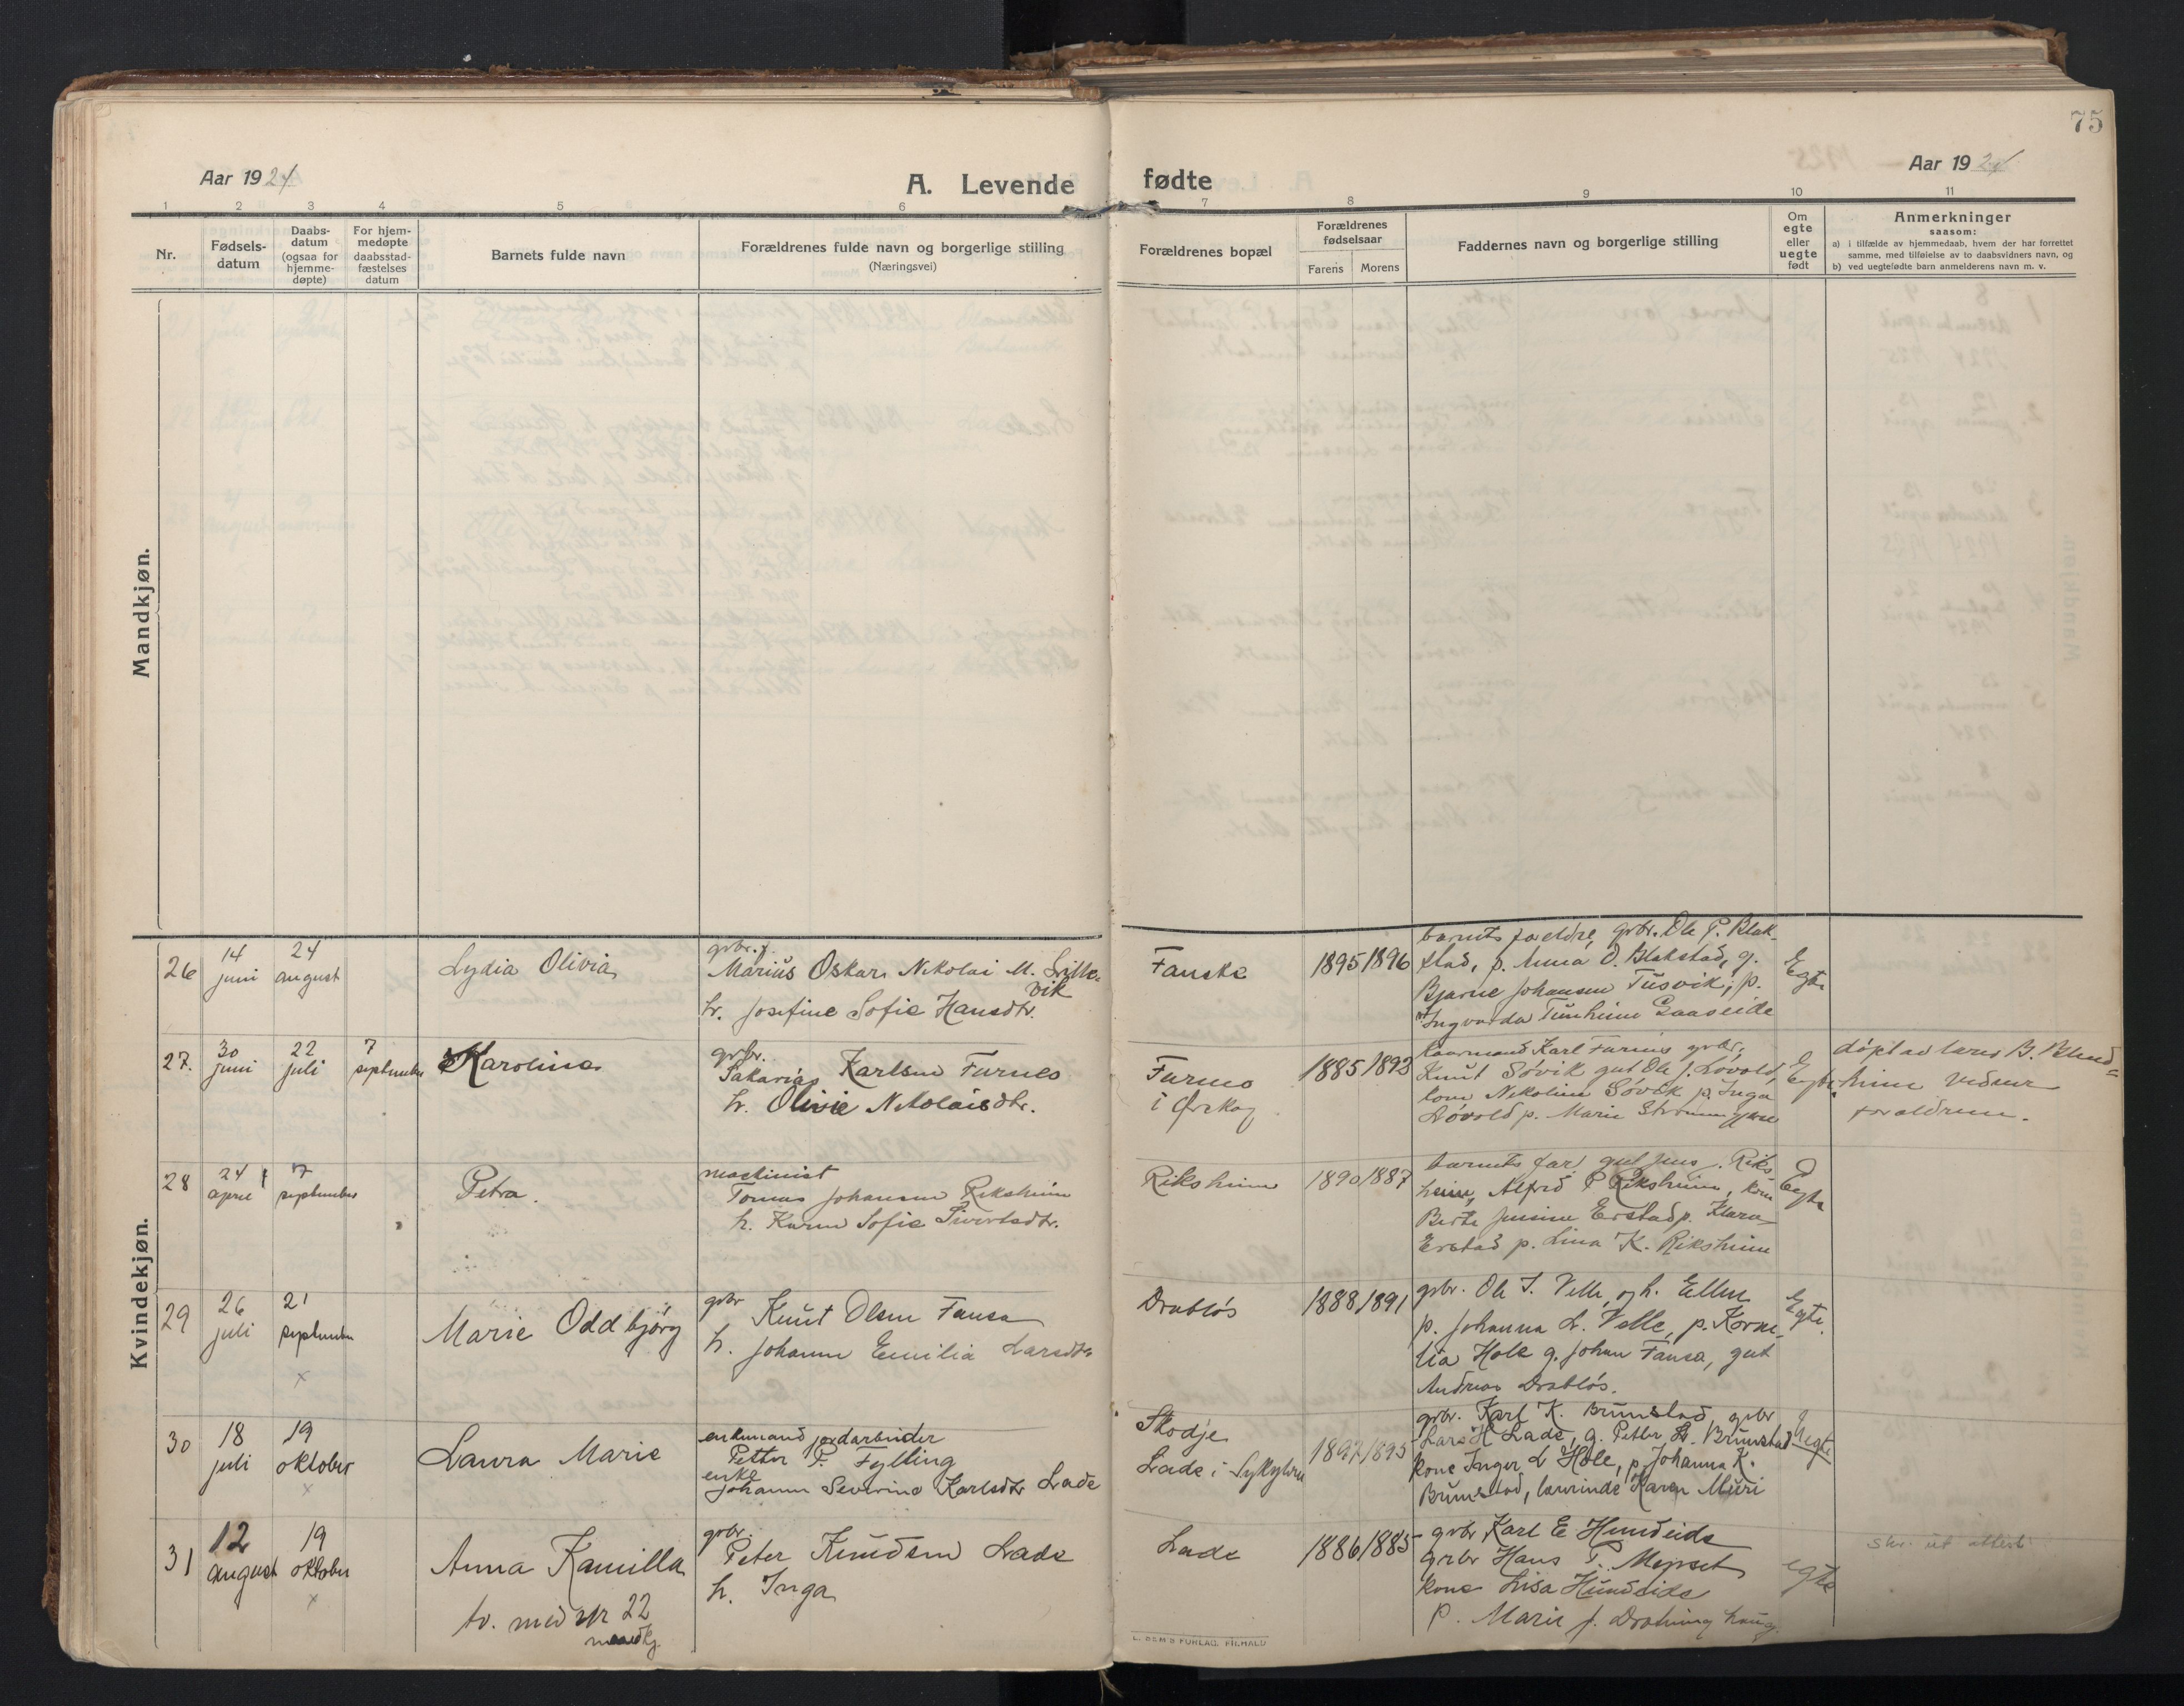 75
Aar 1924
A. Levende fødte
Aar 1924
1 2 3 4 5 6 7 8 9 10 11
Nr.
Fødsels-
datum
Daabs-
datum
(ogsaa for
hjemme-
døpte)
For hjem-
medøpte
daabsstad-
fæstelses
datum
Barnets fulde navn
Forældrenes fulde navn og borgerlige stilling
(Næringsvei)
Forældrenes bopæl
Forældrenes
fødselsaar
Farens Morens
Faddernes navn og borgerlige stilling
Om
egte
eller
uegte
født
Anmerkninger
saasom:
a) i tilfælde av hjemmedaab, hvem der har forrettet
samme, med tilføielse av to daabsvidners navn, og
b) ved uegtefødte barn anmelderens navn m. v.
Mandkjøn.
Kvindekjøn.
26
14
juni
24
august
Lydia Olivia
grbr.
Marius Oskar Nikolai M. Lille-
vik
h. Josefine Sofie Hansdtr.
Fauske
1895 1896
barnets foreldre, grbr. Ole P. Blak-
stad, p. Anna O. Blakstad, g.
Bjarne Johansen Tusvik, p.
Ingvarda Tunheim Gaaseide
Egte
27.
30
juni
22
juli
7
september
Karoline
grbr.
Sakarias Karlsen Furnes
h. Olivie Nikolaisdtr.
Furmo
i Ørskog
1885 1893
Karl Furnes grbr.
Knut Søvik gut Ole J. Løvold,
kone Nikoline Søvik p. Inga
Løvold p. Marie
Egte
døpt av lærer B. Blind-
heim
foraldrene.
28
24
april
7
september
Petra.
maskinist
Tomas Johansen Riksheim
h. Karen Sofie Sivertsdtr.
Riksheim
1890 1887
barnets far, gut Jens J. Riks
heim, Alfred P Riksheim, kone
Berte Jensine Erstad p. Klara
Erstad p. Lina K. Riksheim
Egte
29
26
juli
21
september
x
Marie Oddbjørg
grbr
Knut Olsen Fausa
h. Johanne Emilia Larsdtr
Drabløs
1888 1891
grbr. Ole I. Velle, og h. Ellen
p. Johanna L. Velle, p. Korne-
lia Hole g. Johan Fausa, gut
Andreas Drabløs.
Egte.
30
18
juli
19
oktober
x
Laura Marie
enkemand jordarbeider
Petter P. Fylling
enke
Johanne Severine Karlsdtr Lade
Skodje
Lade i Sykylven
1892 1895
grbr. Karl K. Brunstad grbr
Lars H Lade, g. Petter Br. Brunstad
kone Inger L Hole, p. Johanna K.
Brunstad, lærerinde Karen Muri
Uegte
31
12
august
19
oktober
x
Anna Kamilla
tv. med nr 22
mandkj.
grbr.
Peter Knudsen Lade
h. Inga
Lade
1886 1885
grbr Karl E Hundeide
Grbr Hans P. Mejset
kone Lisa Hundeide
P. Marie J. Drotninghaug.
egte
skr. ut attest
E. SEM'S FORLAG, F.R.HALD